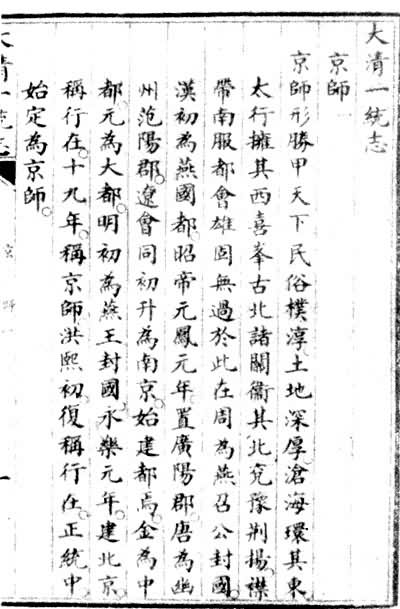 大清一統志
京師一
京師形勝甲天下民俗樸淳土地深厚滄海環其東
太行擁其西喜峯古北諸關衞其北兗豫荆揚襟
帶南服都會雄固無過於此在周為燕召公封國
漢初為燕國都昭帝元鳳元年置廣陽郡唐為幽
州范陽郡遼會同初升為南京始建都焉金為中
都元為大都明初為燕王封國永樂元年建北京
稱行在十九年稱京師洪熙初復稱行在正統中
始定為京師
大清一統志
京師一